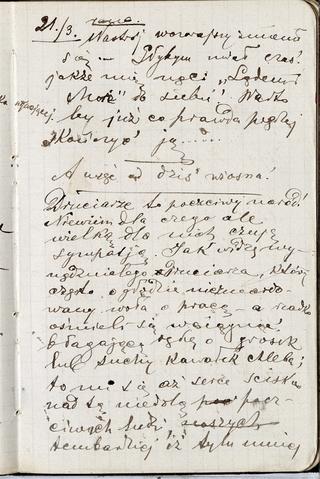 21./3. rano.
Nastrój wczorajszy zmienił
się — Gdybym miał czas!
jakże mię nęci „Lądem
Morze" do siebie! Warto
by już co prawda prędzej
skończyć ją......
A więc od dziś wiosna!
Druciarze to poczciwy naród!
Niewiem dla czego ale
wielką dla nich czuję
sympatję. Jak widzę wy-
nędzniałego Druciarza, który
często o głodzie niezmordo-
wany woła o pracę — a rzadko
ośmieli się wyciągnąć
błagającą rękę o grosik
lub suchy kawałek chleba;
to mi się aż serce ściska
nad tą niedolą pocz-
ciwych ludzi naszych
tembardziej iż tylu mniej